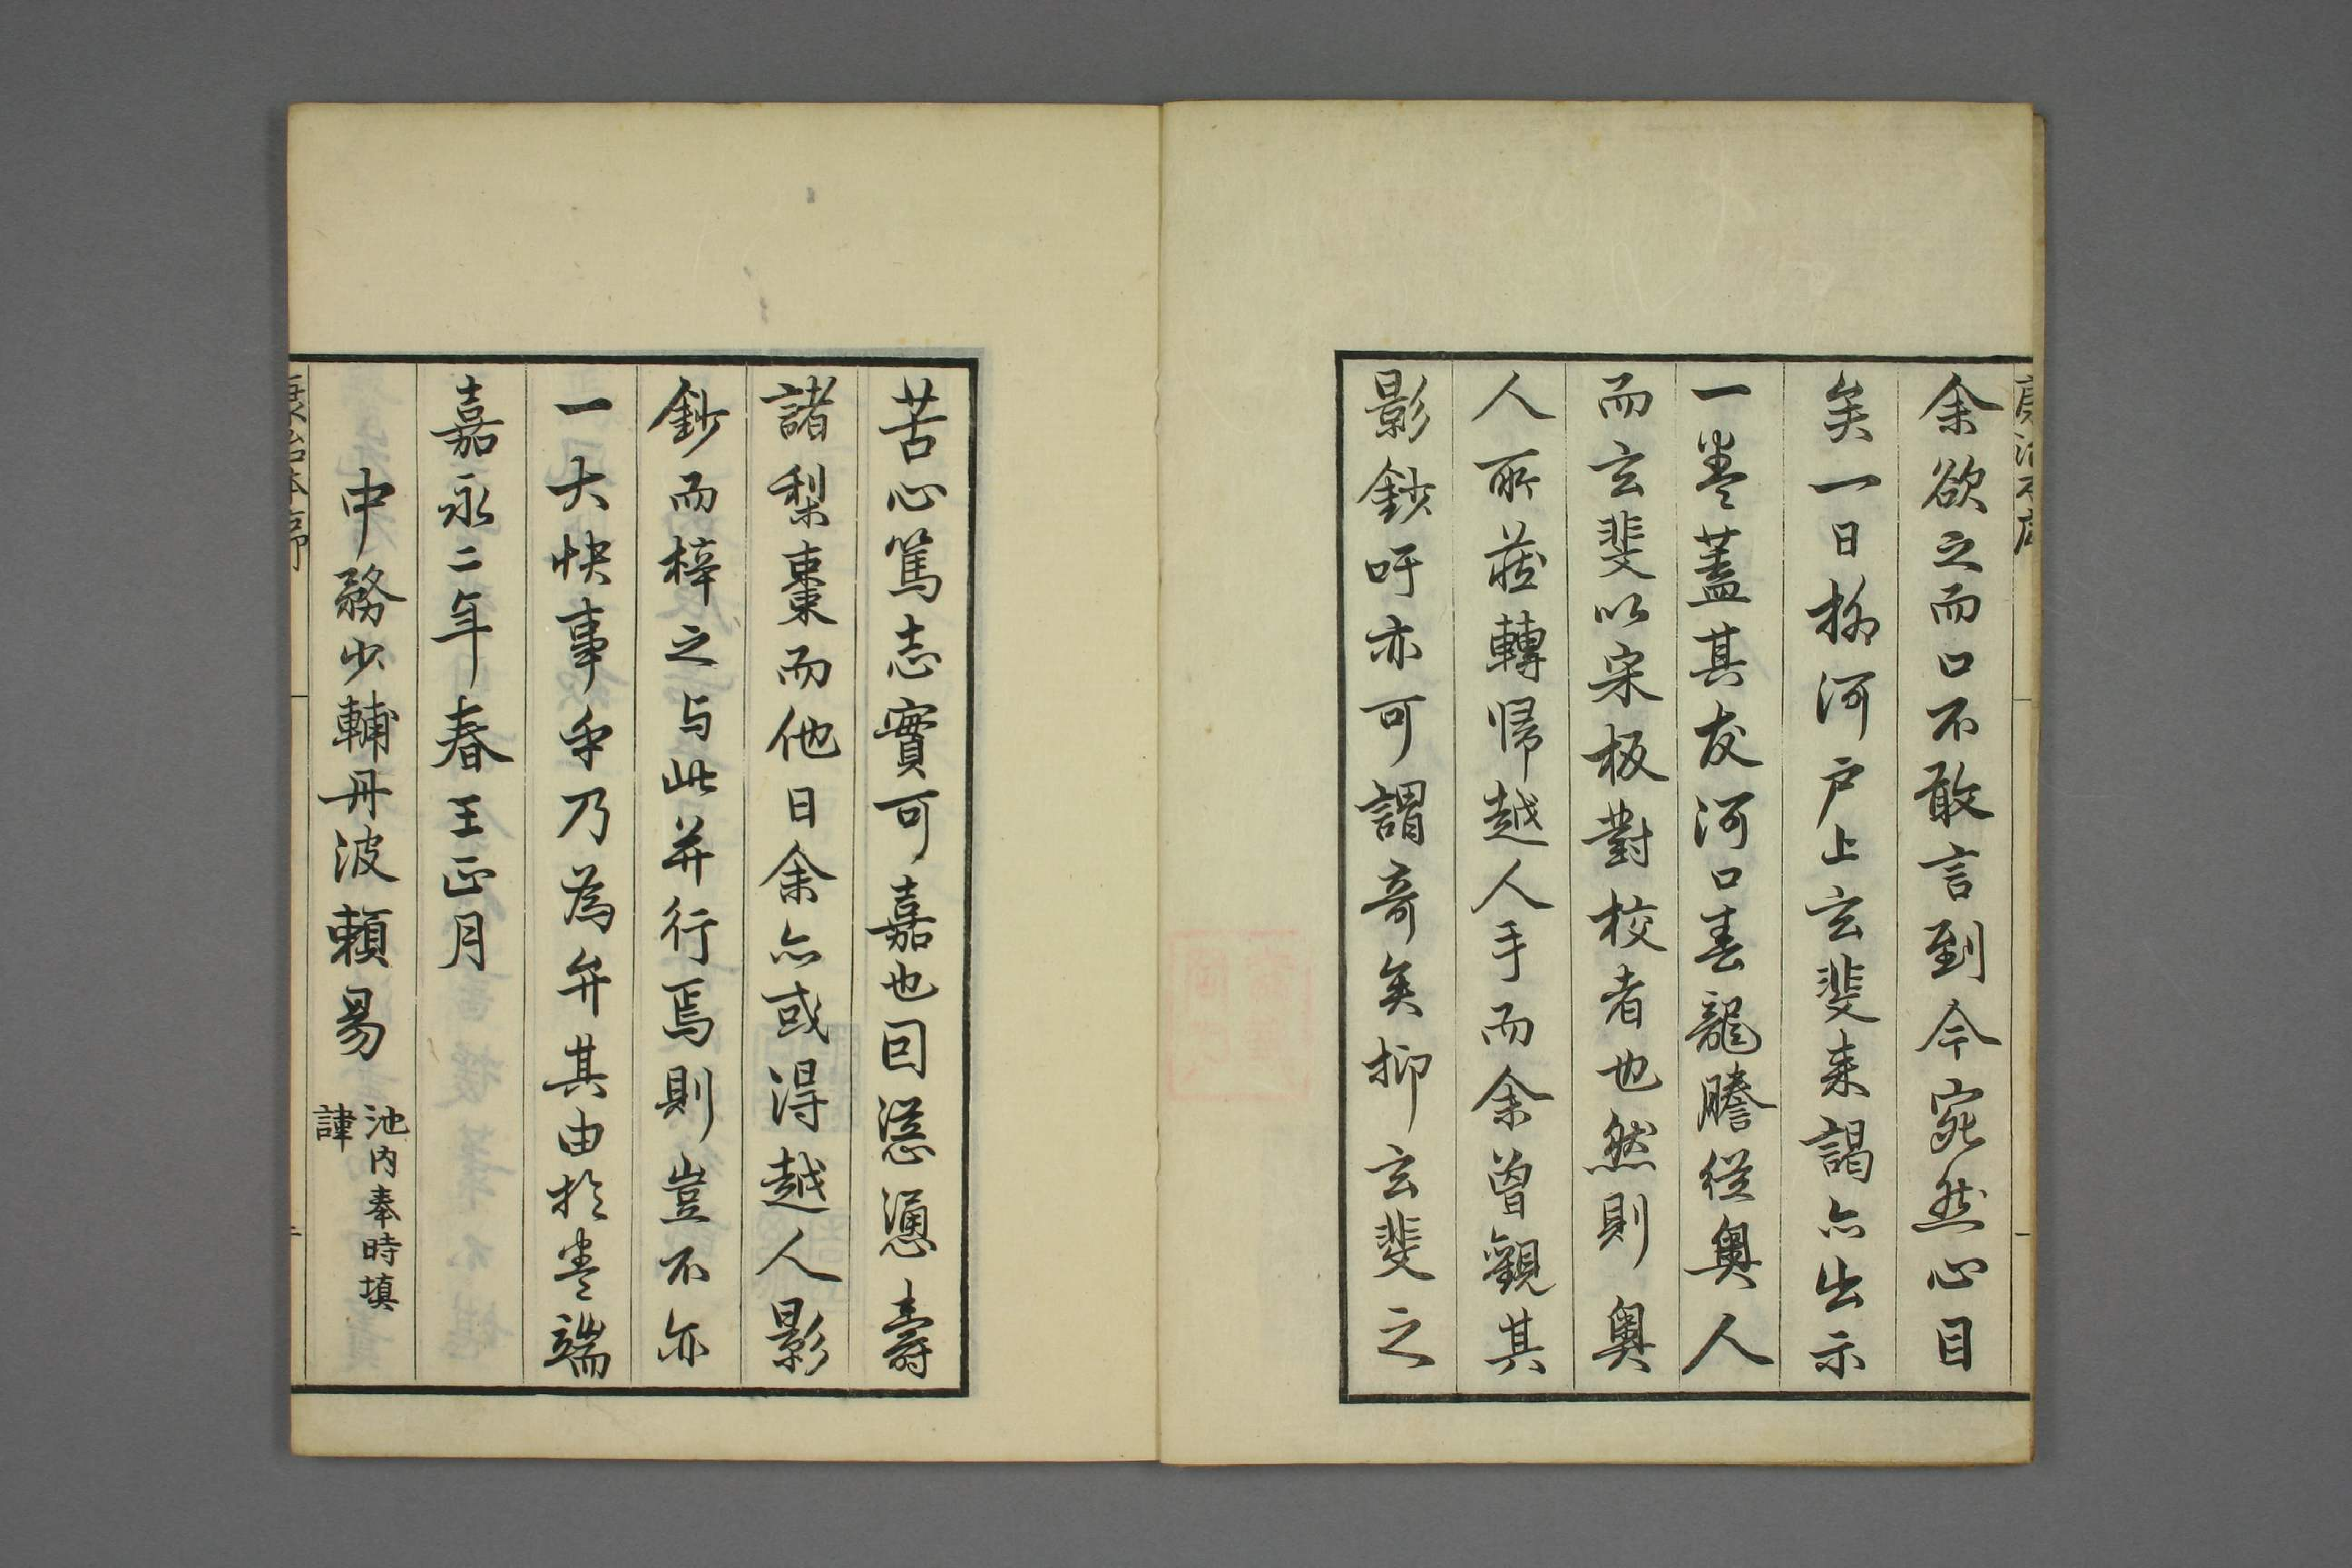 康治本序
余欲之而口不敢言到今宛然心目
矣一日栎河戸上玄斐来謁亦出示
一卷蓋其友河口春龍謄從奧人
而玄斐以宋板對校者也然則奧
人所莊轉帰越人手而余曽觀其
影鈔吁亦可謂奇矣抑玄斐之
苦心篤志實可嘉也因慫慂壽
諸梨棗而他日余亦或得越人影
鈔而梓之与此并行焉則豈不亦
一大快事乎乃為弁其由於卷端
嘉永二年春王正月
中務少輔丹波賴易
池内奉時填
諱
康治本序